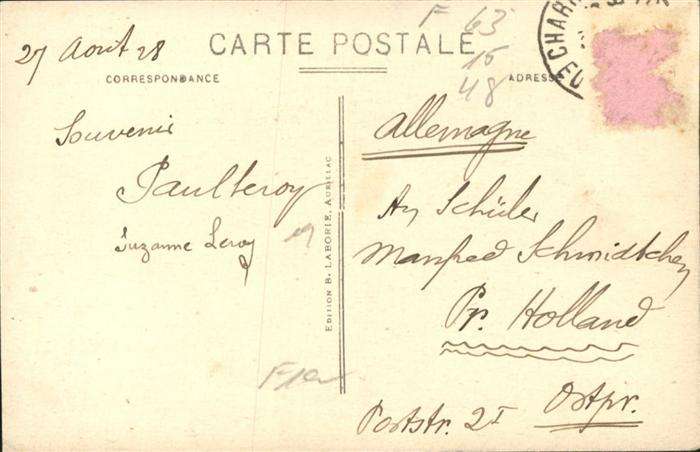 27 Août 28
CARTE POSTALE
CORRESPONDANCE
ADRESSE
F 63
15
48
CHAR
EU
Souvenir
Paul Leroy
Suzanne Leroy
EDITION B. LABORIE, AURILLAC
Allemagne
An Schüler
Manfred Schmidtchen
Pr. Holland
Ostpr.
Poststr. 2I